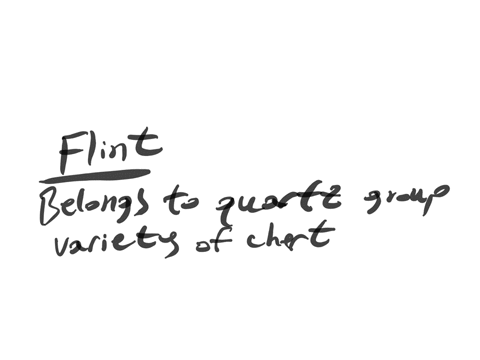 Flint
Belongs to quartz group
variety of chert